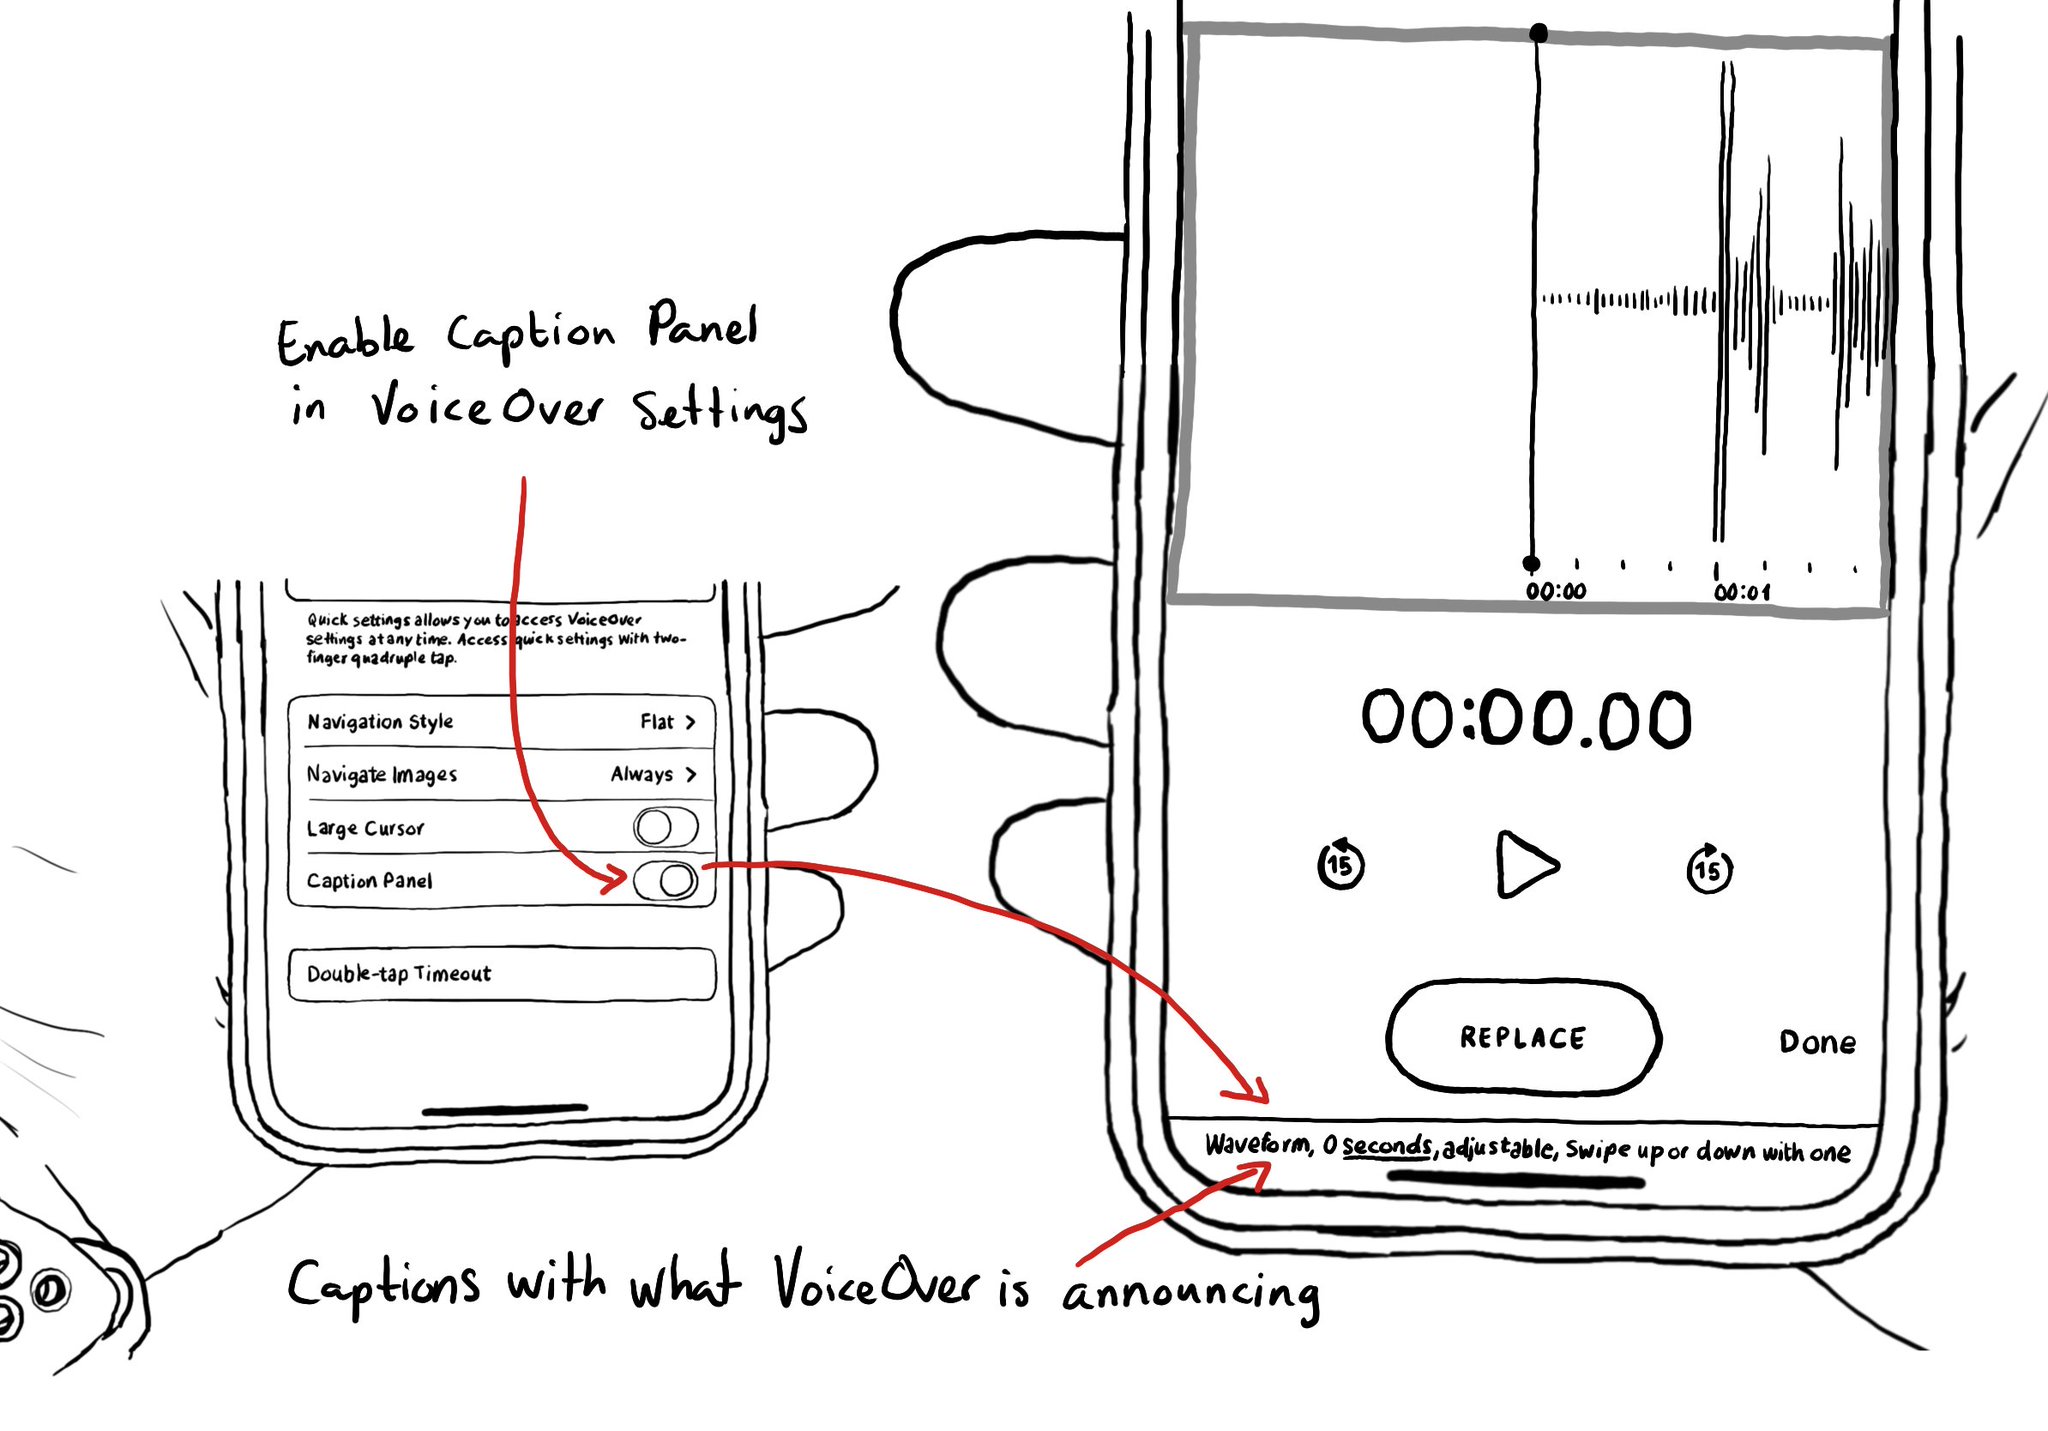 Enable Caption Panel
in VoiceOver Settings
Quick settings allows you to access VoiceOver
settings at any time. Access quick settings with two-
finger quadruple tap.
Navigation Style Flat >
Navigate Images Always >
Large Cursor
Caption Panel
Double-tap Timeout
00:00 00:01
00:00.00
15 15
REPLACE
Done
Waveform, 0 seconds, adjustable, Swipe up or down with one
Captions with what VoiceOver is announcing